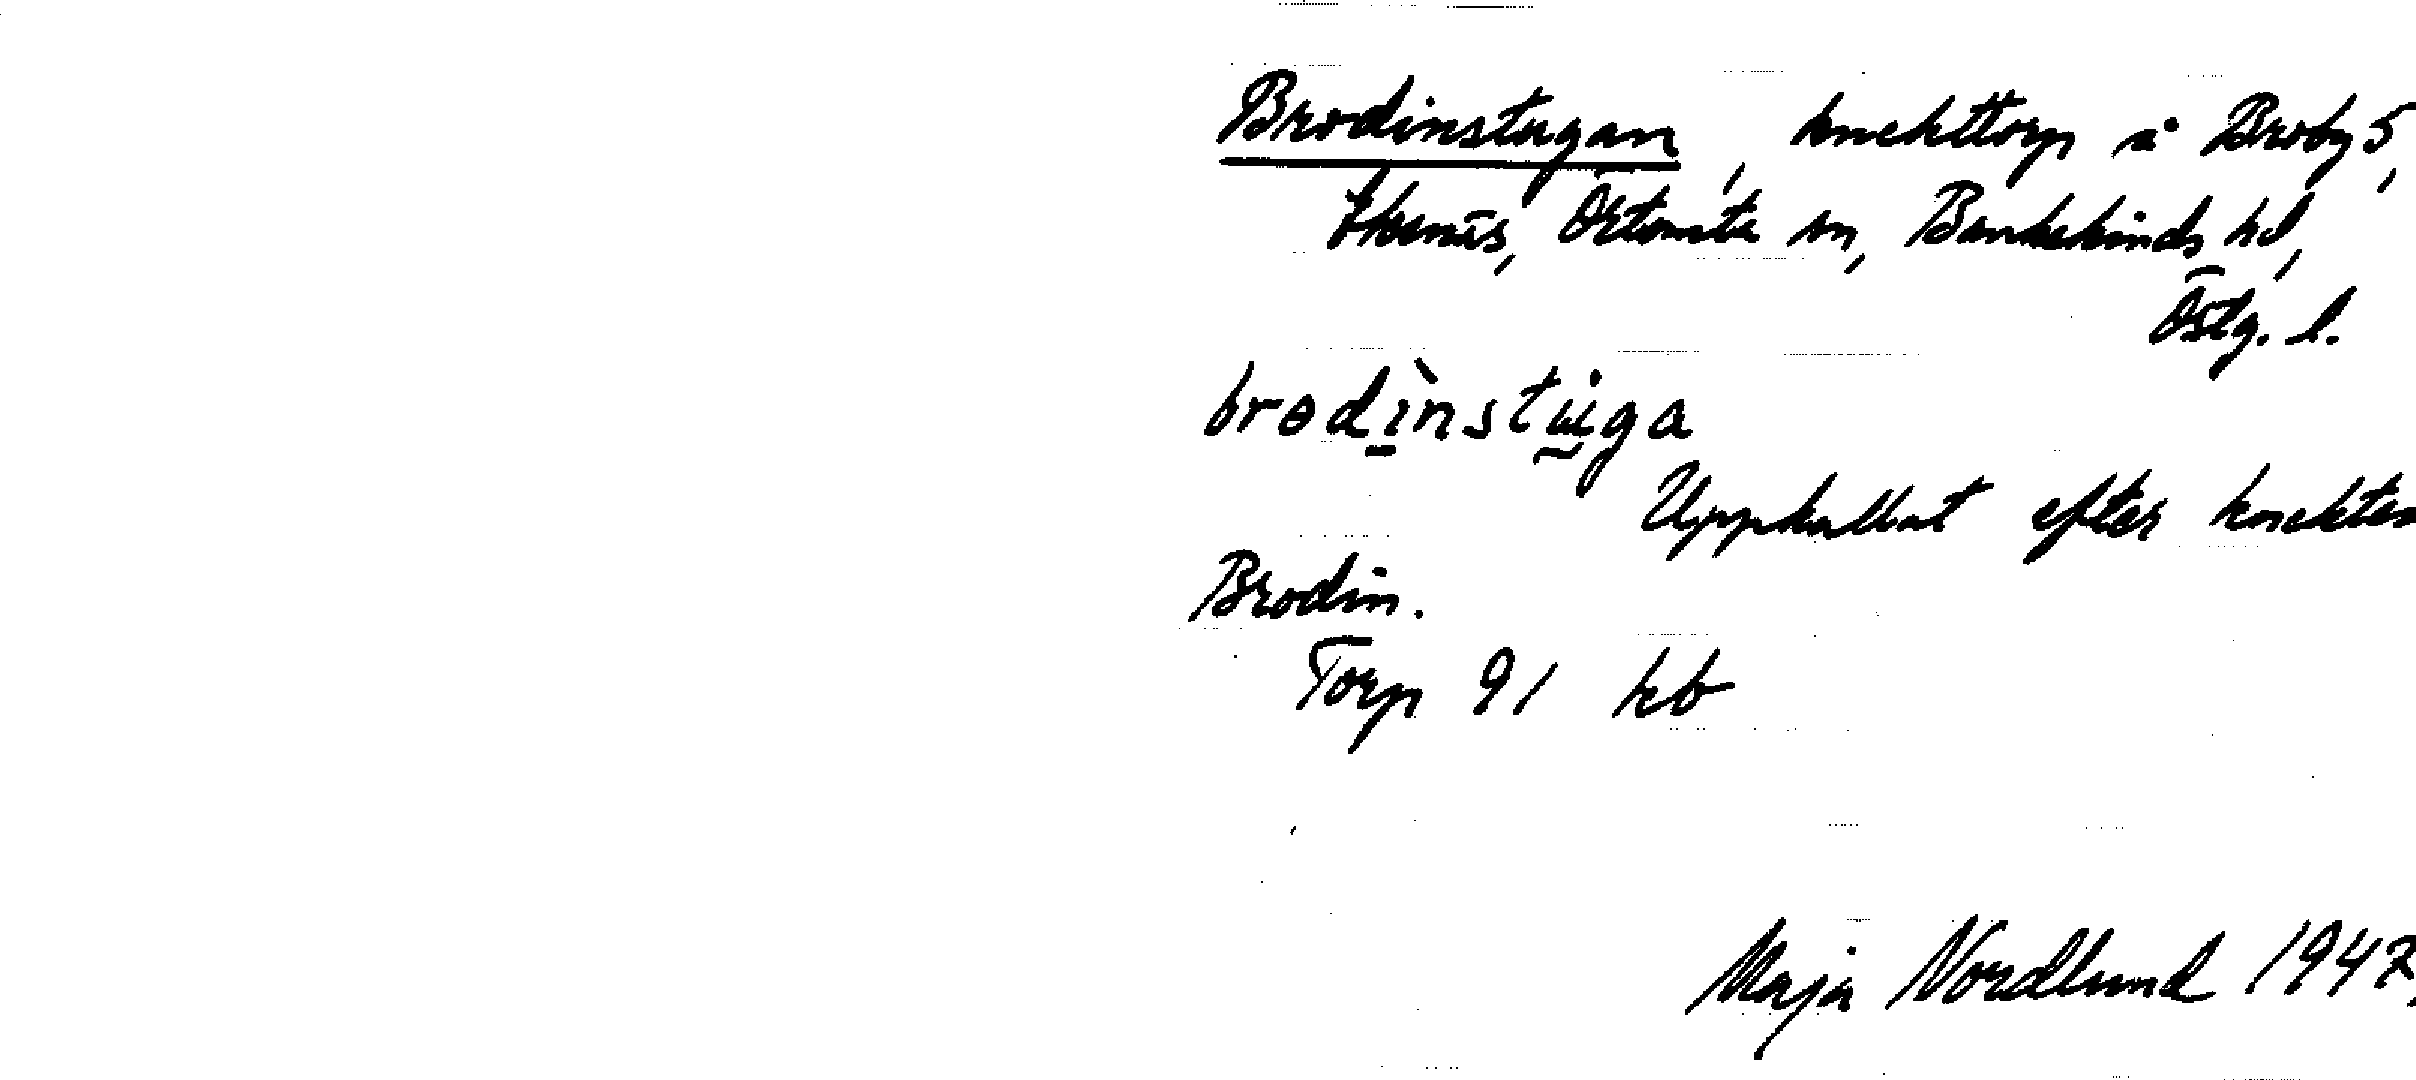 Brodinstugan, knekttorp å Broby 5,
Ekenäs, Örtomta sn, Bankekinds hd,
Östg. l.
brodìnstuga
Uppkallat efter knekten
Brodin.
Torp 91 kb
Maja Nordlund 1947.